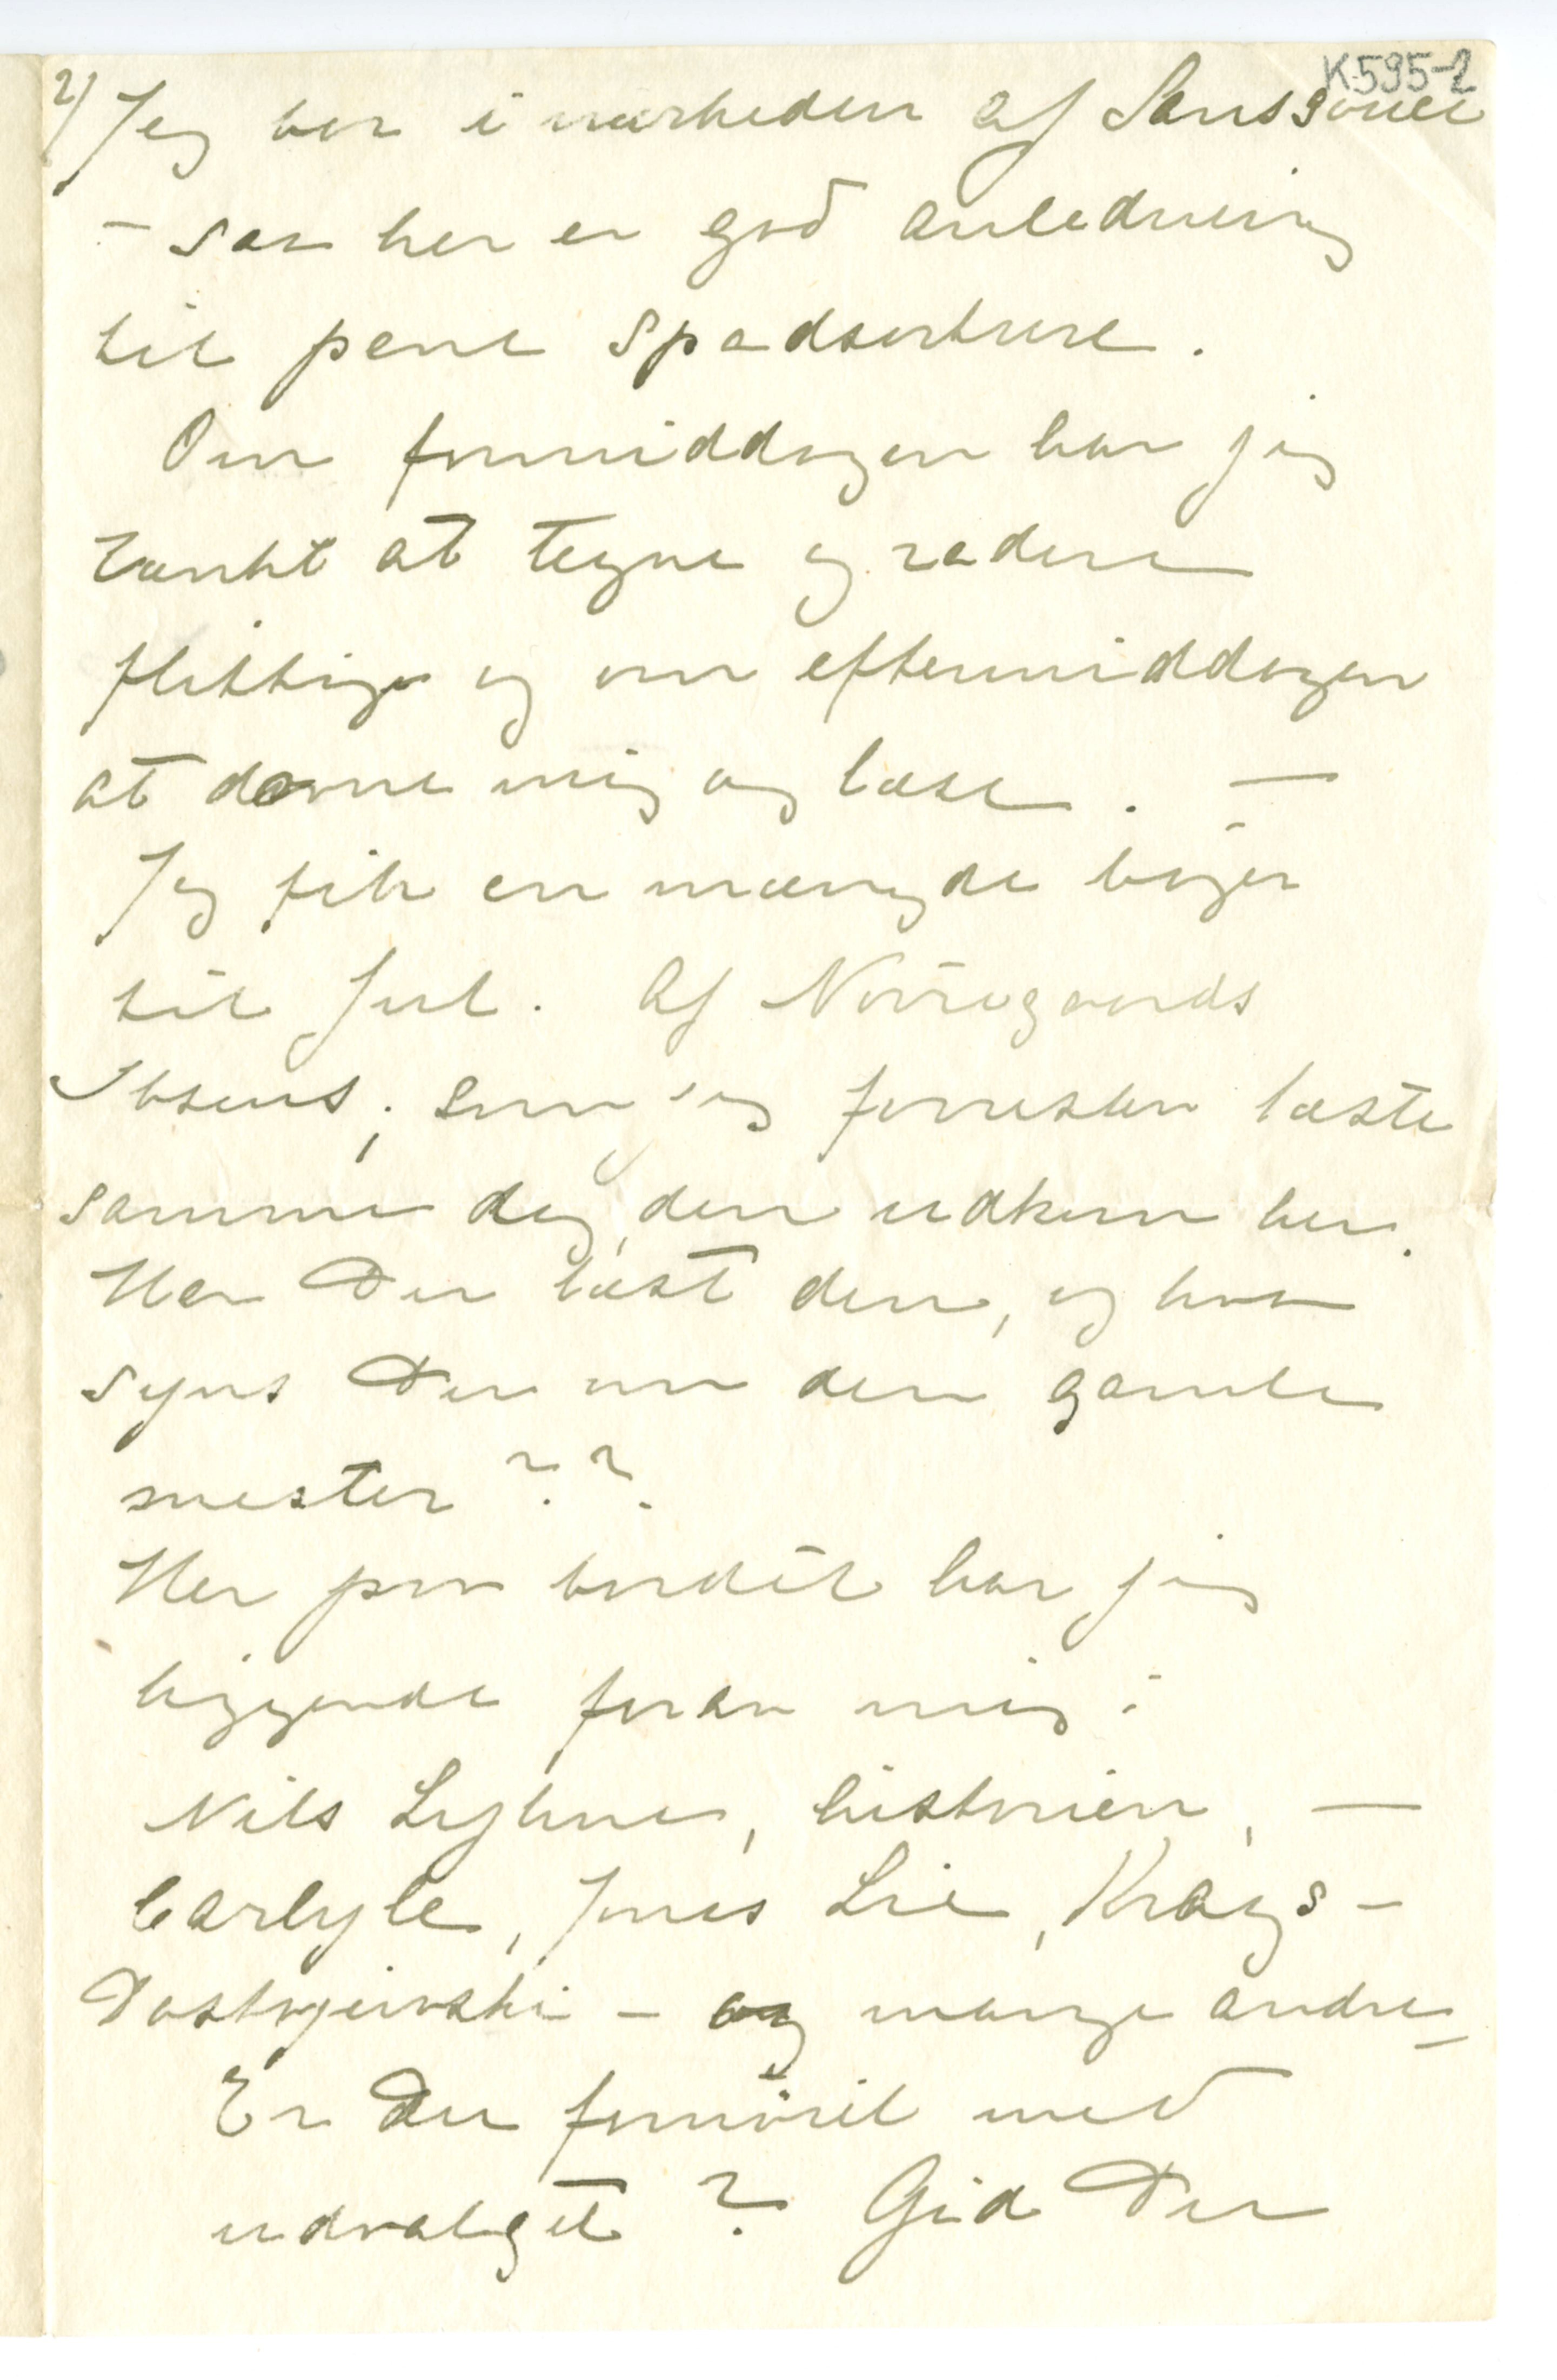 K.595-2
2) Jeg bor i nærheden af Sanssouci
– saa her er god anledning
til pene spadserture.
Om formiddagen har jeg
tænkt at tegne og radere
flittig og om eftermiddagen
at dovne mig og læse. —
Jeg fik en mængde bøger
til Jul. Af Nörregaards
Ibsens, som jeg forresten læste
samme dag, den udkom her.
Har Du læst den, og hva
syns Du om den gamle
mester??
Her paa bordet har jeg
liggende foran mig:
Nils Lyhne, historien, —
Carlyle, Jonas Lie, Krags –
Dostojevski – og mange andre –
Er Du fornöiet med
udvalget? Gid Du